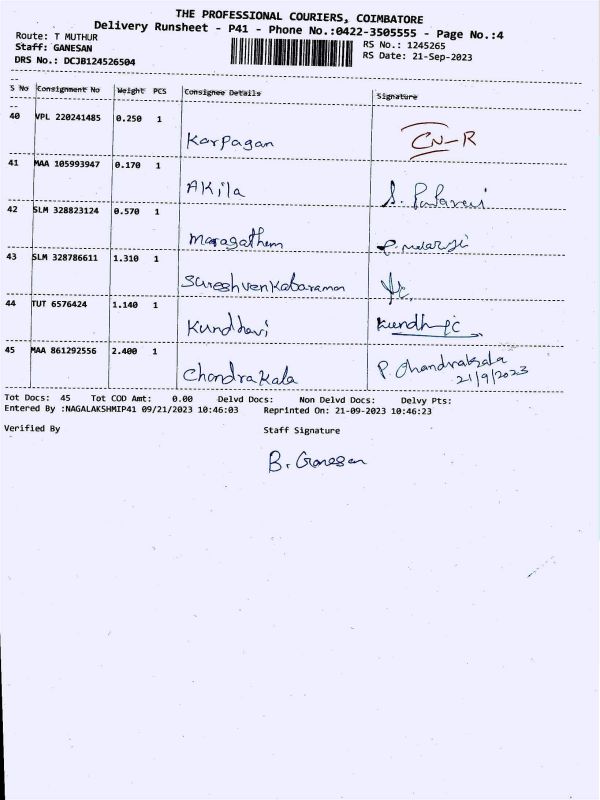 THE PROFESSIONAL COURIERS, COIMBATORE
Delivery Runsheet - P41 - Phone No.:0422-3505555 - Page No.:4
Route: T MUTHUR
RS No.: 1245265
Staff: GANESAN
RS Date: 21-Sep-2023
DRS No.: DCJB124526504
S No Consignment No Weight PCS Consignee Details Signature
40 VPL 220241485 0.250 1
Karpagan CN-R
41 MAA 105993947 0.170 1
Akila S.
42 SLM 328823124 0.570 1
Maragathem
43 SLM 328786611 1.310 1
Sureshvenkataraman
44 TUT 6576424 1.140 1
Kundhavi
45 MAA 861292556 2.400 1
Chandrakala P. Chandrakala
21/9/2023
Tot Docs: 45 Tot COD Amt: 0.00 Delvd Docs: Non Delvd Docs: Delvy Pts:
Entered By :NAGALAKSHMIP41 09/21/2023 10:46:03 Reprinted On: 21-09-2023 10:46:23
Verified By Staff Signature
B. Ganesan